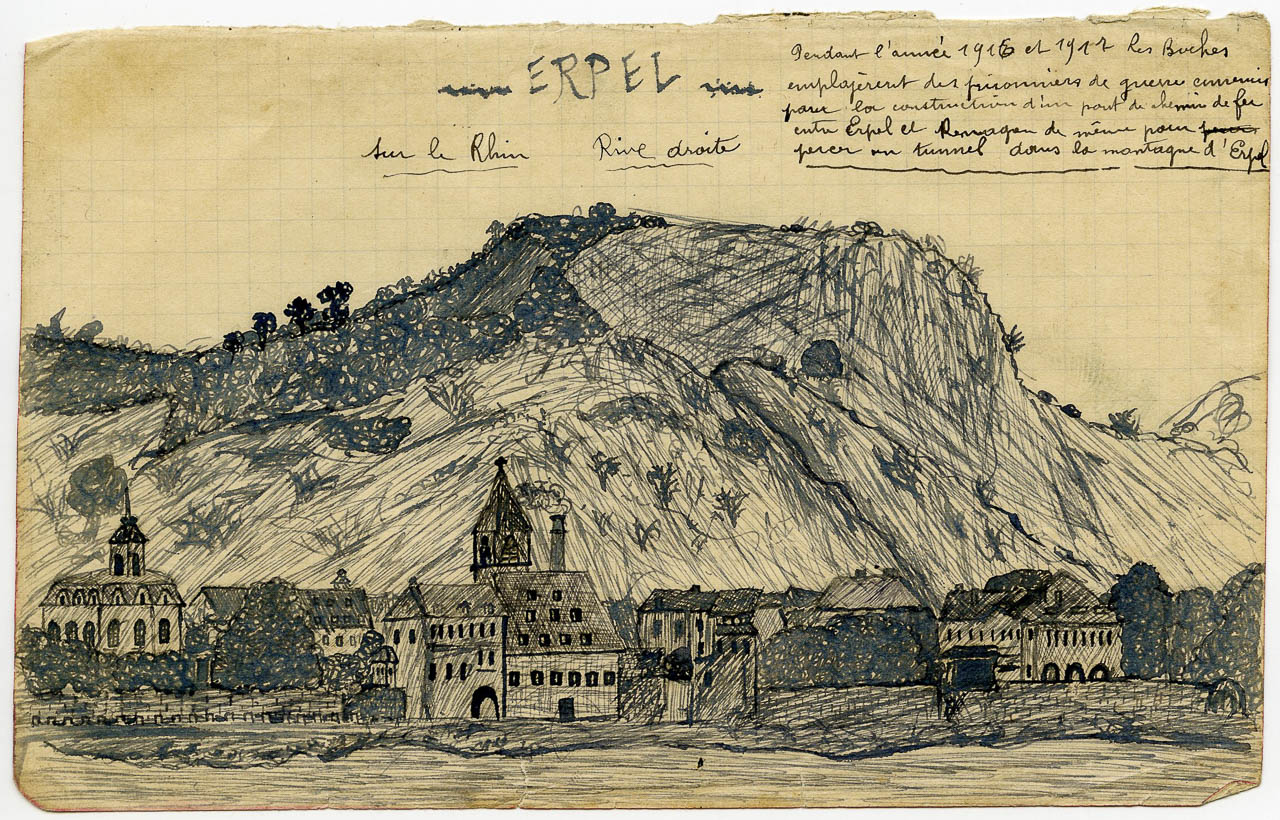 ERPEL
sur le Rhin Rive droite
Pendant l'année 1916 et 1917 les Boches
emplojèrent des prisonniers de guerre
pour la construction d'un pont de chemin de fer
entre Erpel et Remagen de même pour
percer un tunnel dans la montagne d'Erpel